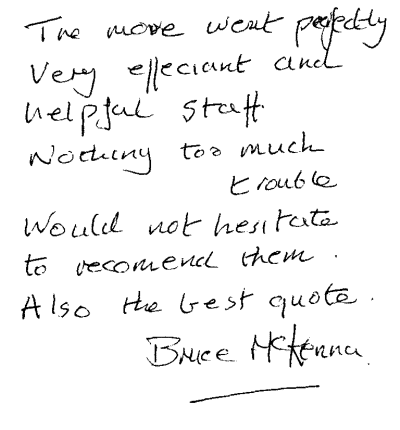 The move went perfectly
Very effeciant and
helpful staff.
Nothing too much
trouble
Would not hesitate
to recomend them.
Also the best quote.
Bruce McKenna.